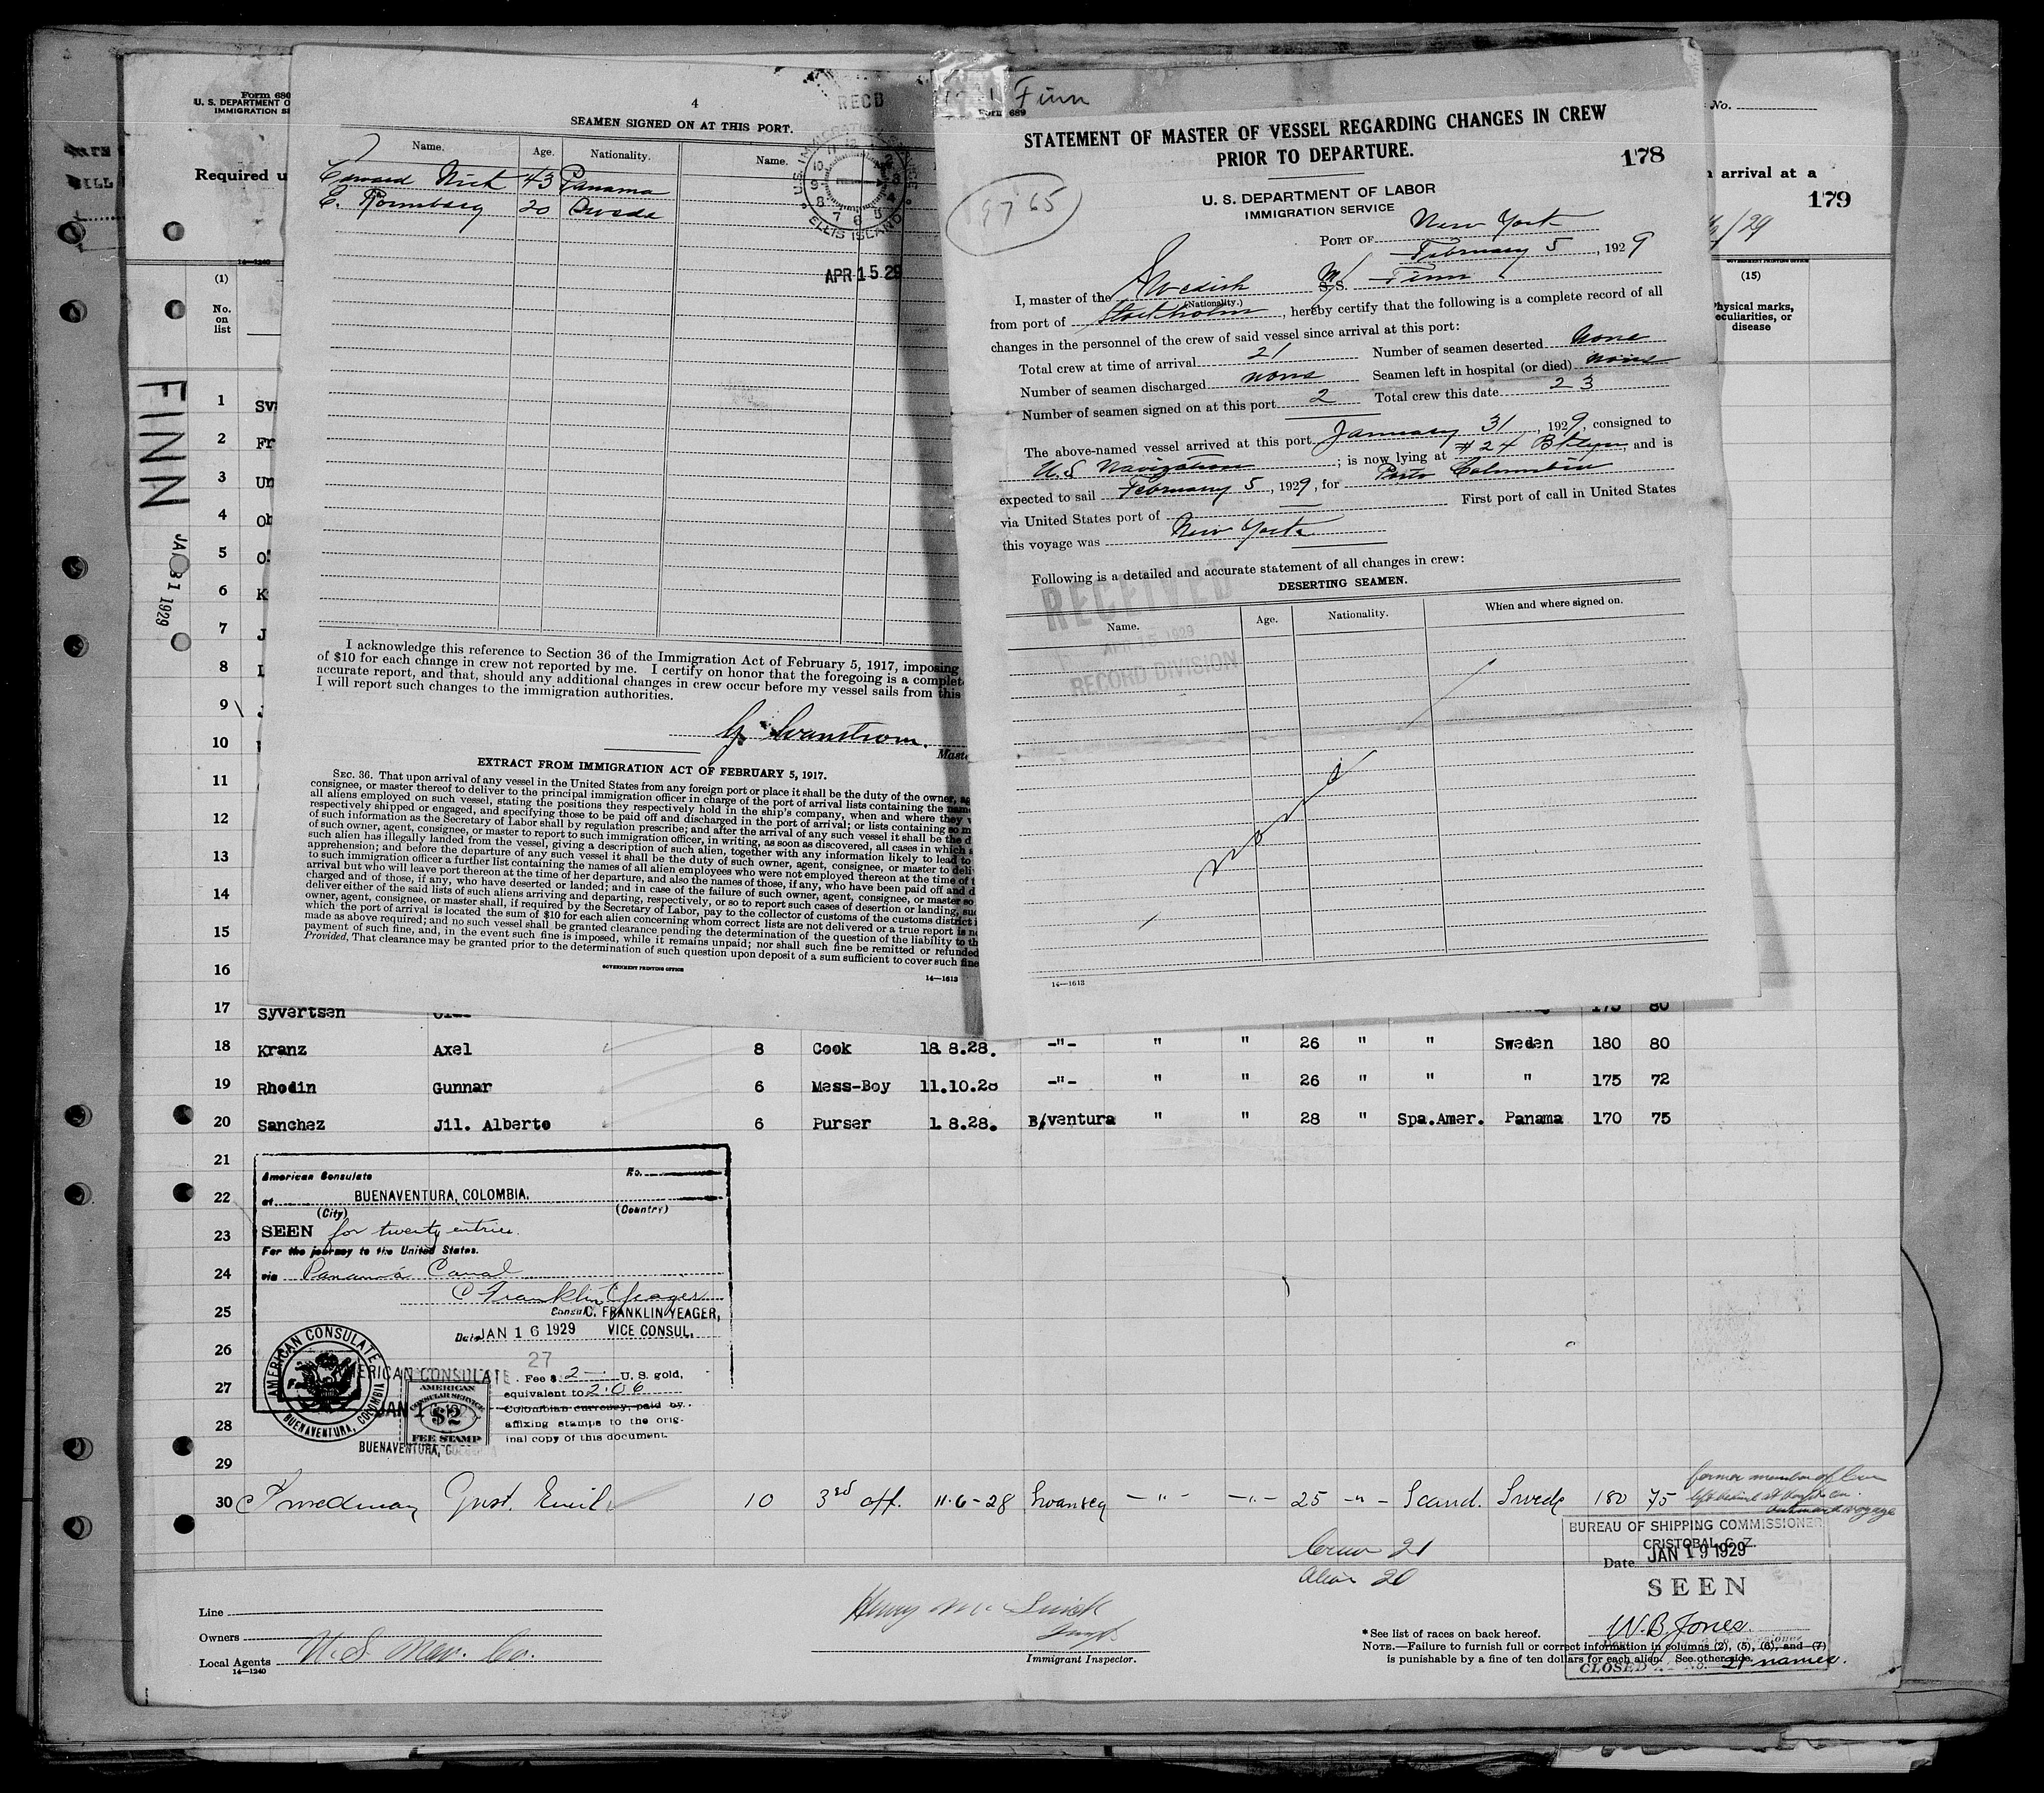 Form 680
U. S. DEPARTMENT O
IMMIGRATION SE
Required u
14—1240
(1)
No.
on
list
FINN
JAN 31 1929
1
2
3
4
5
6
7
8
9
10
11
12
13
14
15
16
Sv
Fr
Un
4
SEAMEN SIGNED ON AT THIS PORT.
Name. Age. Nationality. Name.
Edward Nick 43 Panama
E. Rönnberg 20 Swede
RECD
U.S. IMMIGRATION SERVICE
ELLIS ISLAND
APR 15 29
I acknowledge this reference to Section 36 of the Immigration Act of February 5, 1917, imposing
of $10 for each change in crew not reported by me. I certify on honor that the foregoing is a complet
accurate report, and that, should any additional changes in crew occur before my vessel sails from this
I will report such changes to the immigration authorities.
G. Svanstrom.
Maste
EXTRACT FROM IMMIGRATION ACT OF FEBRUARY 5, 1917.
SEC. 36. That upon arrival of any vessel in the United States from any foreign port or place it shall be the duty of the owner, ag
consignee, or master thereof to deliver to the principal immigration officer in charge of the port of arrival lists containing the name
all aliens employed on such vessel, stating the positions they respectively hold in the ship's company, when and where they
respectively shipped or engaged, and specifying those to be paid off and discharged in the port of arrival; or lists containing so m
of such information as the Secretary of Labor shall by regulation prescribe; and after the arrival of any such vessel it shall be the d
of such owner, agent, consignee, or master to report to such immigration officer, in writing, as soon as discovered, all cases in which a
such alien has illegally landed from the vessel, giving a description of such alien, together with any information likely to lead to
apprehension; and before the departure of any such vessel it shall be the duty of such owner, agent, consignee, or master to deli
to such immigration officer a further list containing the names of all alien employees who were not employed thereon at the time of t
arrival but who will leave port thereon at the time of her departure, and also the names of those, if any, who have been paid off and d
charged and of those, if any, who have deserted or landed; and in case of the failure of such owner, agent, consignee, or master so
deliver either of the said lists of such aliens arriving and departing, respectively, or so to report such cases of desertion or landing, suc
owner, agent, consignee, or master shall, if required by the Secretary of Labor, pay to the collector of customs of the customs district i
which the port of arrival is located the sum of $10 for each alien concerning whom correct lists are not delivered or a true report is no
made as above required; and no such vessel shall be granted clearance pending the determination of the question of the liability to th
payment of such fine, and, in the event such fine is imposed, while it remains unpaid; nor shall such fine be remitted or refunded
Provided, That clearance may be granted prior to the determination of such question upon deposit of a sum sufficient to cover such fine
GOVERNMENT PRINTING OFFICE
14—1613
Finn
Form 689
STATEMENT OF MASTER OF VESSEL REGARDING CHANGES IN CREW
PRIOR TO DEPARTURE.
178
U. S. DEPARTMENT OF LABOR
IMMIGRATION SERVICE
19765
PORT OF New York
February 5, 1929
I, master of the Swedish M/S.S. Finn
(Nationality.)
from port of Stockholm, hereby certify that the following is a complete record of all
changes in the personnel of the crew of said vessel since arrival at this port:
Total crew at time of arrival 21 Number of seamen deserted None
Number of seamen discharged none Seamen left in hospital (or died) None
Number of seamen signed on at this port 2 Total crew this date 23
The above-named vessel arrived at this port January 31, 1929, consigned to
U.S Navigation; is now lying at #24 Bklyn, and is
expected to sail February 5, 1929, for Porto Columbia
via United States port of — First port of call in United States
this voyage was New York
Following is a detailed and accurate statement of all changes in crew:
DESERTING SEAMEN.
Name. Age. Nationality. When and where signed on.
RECEIVED
APR 15 1929
RECORD DIVISION
None
14—1613
No.
n arrival at a
179
/29
GOVERNMENT PRINTING OFFICE
(15)
Physical marks,
peculiarities, or
disease
17 Syvertsen 175 80
18 Kranz Axel 8 Cook 18.8.28. -"- " " 26 " " Sweden 180 80
19 Rhodin Gunnar 6 Mess-Boy 11.10.28 -"- " " 26 " " " 175 72
20 Sanchez Jil. Alberto 6 Purser 1.8.28. B/ventura " " 28 " Spa.Amer. Panama 170 75
21
22
23
24
25
26
27
28
29
American Consulate No.
at BUENAVENTURA, COLOMBIA.
(City) (Country)
SEEN for twenty entries.
For the journey to the United States.
via Panamá Canal
C Franklin Yeager
Consul C. FRANKLIN YEAGER,
Date JAN 16 1929 VICE CONSUL.
27
AMERICAN CONSULATE
BUENAVENTURA, COLOMBIA
AMERICAN CONSULATE
JAN 1
BUENAVENTURA, C
AMERICAN
CONSULAR SERVICE
$2
FEE STAMP
Fee $ 2— U. S. gold,
equivalent to 2.06
Colombian currency, paid by
affixing stamps to the orig-
inal copy of this document.
30 Gust. Emil 10 3rd off. 11-6-28 Swansea -"- -"- 25 -"- Scand. Swede 180 75
former member of Crew
Crew 21
Alien 20
BUREAU OF SHIPPING COMMISSIONER
CRISTOBAL C. Z.
Date JAN 19 1929
SEEN
W.B. Jones.
CLOSED 21 names.
Line
Owners
Local Agents U.S Nav. Co.
14—1240
Immigrant Inspector.
*See list of races on back hereof.
NOTE.—Failure to furnish full or correct information in columns (2), (5), (6), and (7)
is punishable by a fine of ten dollars for each alien. See other side.